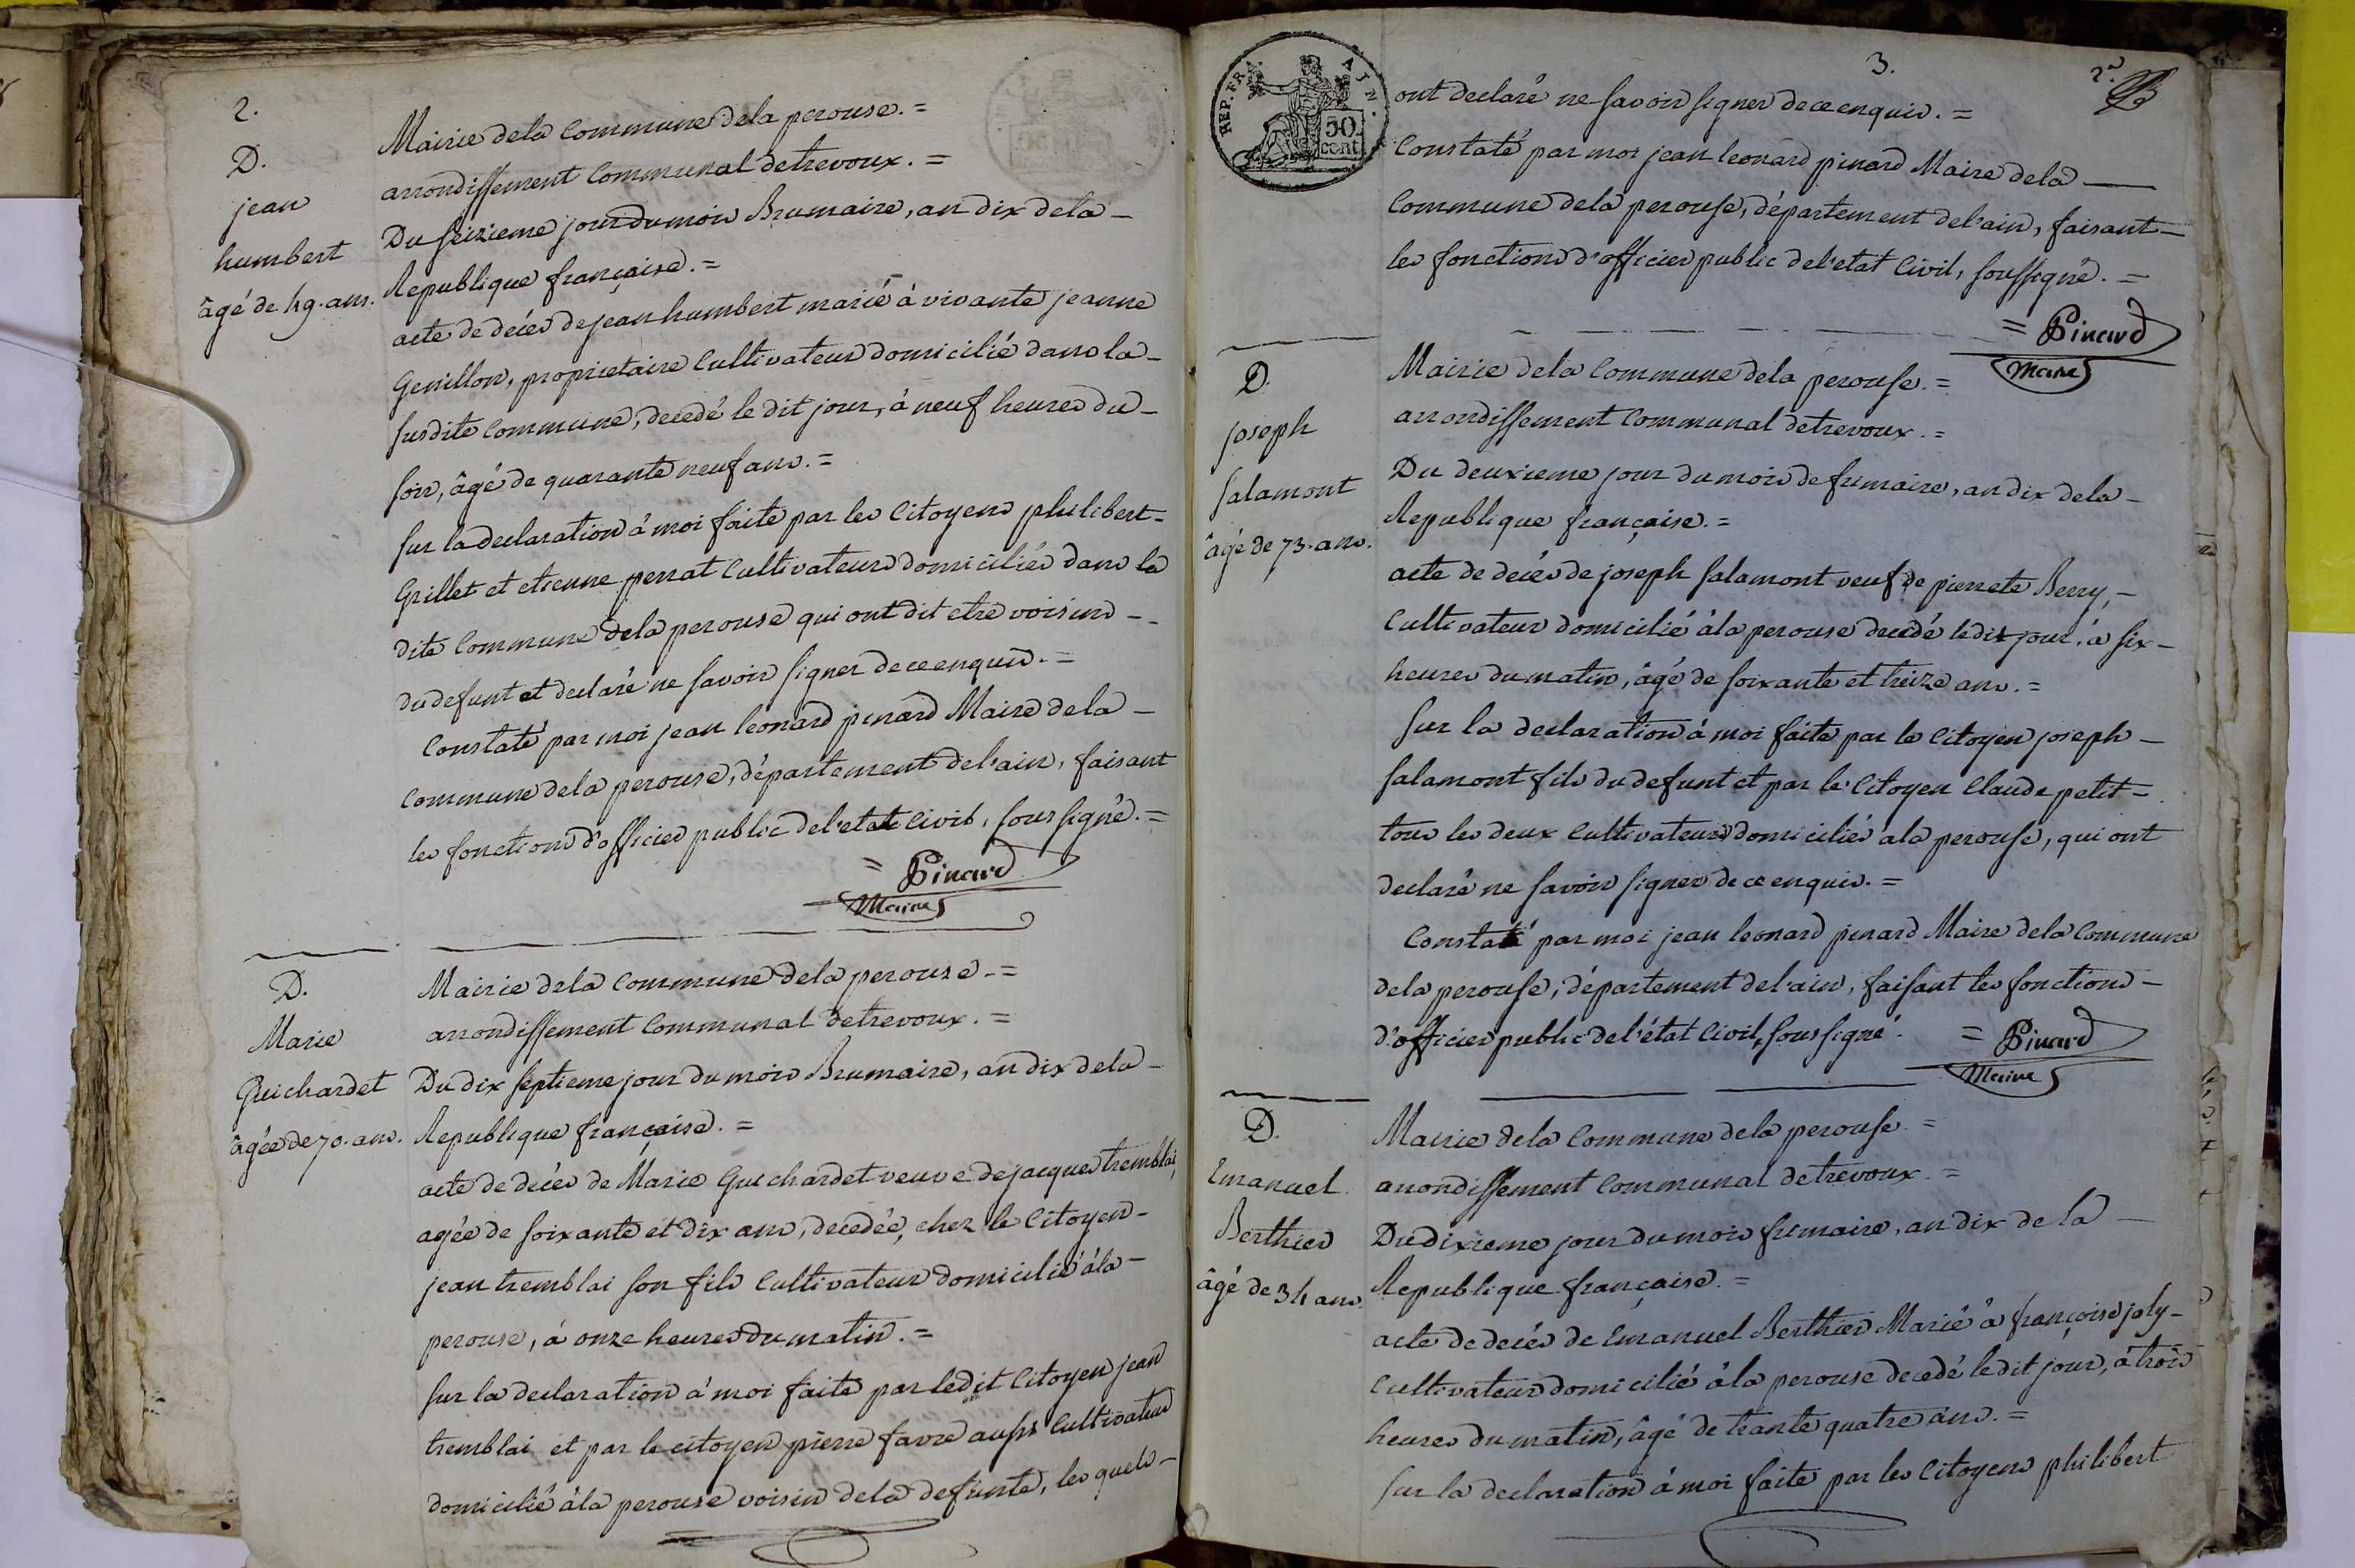 2.
D.
jean
humbert
âgé de 49. ans.
Mairie dela Commune dela perouse. =
arrondissement Communal detrevoux. =
Du seizieme jour du mois Brumaire, an dix dela –
Republique française. =
acte de decés de jean humbert marié à vivante jeanne
Genillon, proprietaire Cultivateur domicilié dans la –
susdite Commune, decedé le dit jour, à neuf heures du –
soir, âgé de quarante neuf ans. =
sur la declaration à moi faite par les Citoyens philibert =
Grillet et etienne perrat Cultivateurs domiciliés dans la
dite Commune dela perouse qui ont dit etre voisins – –
du defunt et declaré ne savoir signer de ce enquis. =
Constaté par moi jean leonard pinard Maire dela –
Commune dela perouse, département del'ain, faisant
les fonctions d'officier public del'etat Civil, soussigné. =
= Pinard
Maire
D.
Marie
Guichardet
âgée de 70. ans.
Mairie dela Commune dela perouse – =
arrondissement Communal detrevoux. =
Du dix septieme jour du mois Brumaire, an dix dela –
Republique française. =
acte de decés de Marie Guichardet veuve de jacques tremblai,
agée de soixante et dix ans, decedée, chez le Citoyen –
jean tremblai son fils Cultivateur domicilié àla –
perouse, à onze heures du matin. =
sur la declaration à moi faite par ledit Citoyen jean
tremblai et par le citoyen pierre favre aussi Cultivateur
domicilié àla perouse voisin dela defunte, les quels –
3.
REP. FRA. AIN.
50
cent.
ont declaré ne savoir signer de ce enquis. =
Constaté par moi jean leonard pinard Maire dela —
Commune dela perouse, département del'ain, faisant –
les fonctions d'officier public del'etat Civil, soussigné. =
= Pinard
Maire
D.
joseph
salamont
âgé de 73. ans.
Mairie dela Commune dela perouse. =
arrondissement Communal detrevoux. =
Du deuxieme jour du mois de frimaire, an dix dela –
Republique française. =
acte de decés de joseph salamont veuf de pierrete Berry, –
Cultivateur domicilié àla perouse decedé ledit jour, à six –
heures du matin, âgé de soixante et treize ans. =
sur la declaration à moi faite par le Citoyen joseph –
salamont fils du defunt et par le Citoyen Claude petit =
tous les deux Cultivateurs domiciliés àla perouse, qui ont
declaré ne savoir signer de ce enquis. =
Constaté par moi jean leonard pinard Maire dela Commune
dela perouse, département del'ain, faisant les fonctions –
d'officier public del'état Civil, soussigné. = Pinard
Maire
D.
Emanuel
Berthier
âgé de 34 ans.
Mairie dela Commune dela perouse. =
arrondissement Communal detrevoux. =
Du dixieme jour du mois frimaire, an dix de la –
Republique française. =
acte de decés de Emanuel Berthier Marié à françoise joly –
Cultivateur domicilié àla perouse decedé ledit jour, à trois
heures du matin, âgé de trante quatre ans. =
sur la declaration à moi faite par les Citoyens philibert